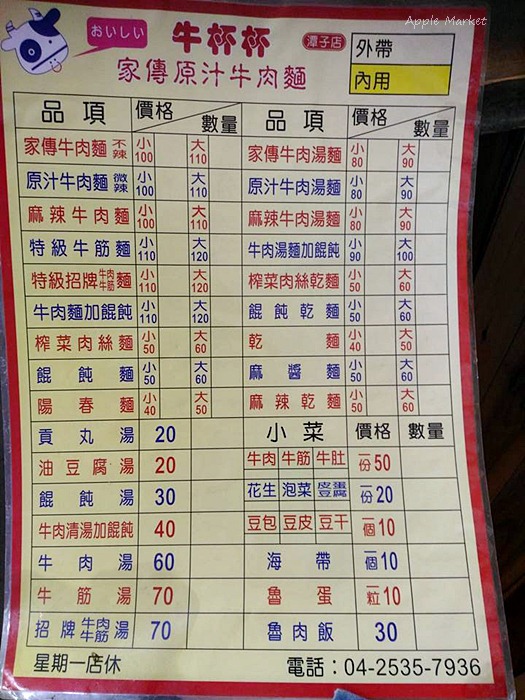 Apple Market
おいしい 牛杯杯 潭子店
家傳原汁牛肉麵
外帶
內用
品項 價格 數量 品項 價格 數量
家傳牛肉麵 不辣 小100 大110 家傳牛肉湯麵 小80 大90
原汁牛肉麵 微辣 小100 大110 原汁牛肉湯麵 小80 大90
麻辣牛肉麵 小100 大110 麻辣牛肉湯麵 小80 大90
特級牛筋麵 小110 大120 牛肉湯麵加餛飩 小90 大100
特級招牌牛肉牛筋麵 小110 大120 榨菜肉絲乾麵 小50 大60
牛肉麵加餛飩 小110 大120 餛飩乾麵 小50 大60
榨菜肉絲麵 小50 大60 乾麵 小40 大50
餛飩麵 小50 大60 麻醬麵 小50 大60
陽春麵 小40 大50 麻辣乾麵 小50 大60
貢丸湯 20 小菜 價格 數量
油豆腐湯 20 牛肉 牛筋 牛肚 一份50
餛飩湯 30 花生 泡菜 皮蛋豆腐 一份20
牛肉清湯加餛飩 40 豆包 豆皮 豆干 一個10
牛肉湯 60 海帶 一個10
牛筋湯 70 魯蛋 一粒10
招牌牛肉牛筋湯 70 魯肉飯 30
星期一店休 電話:04-2535-7936